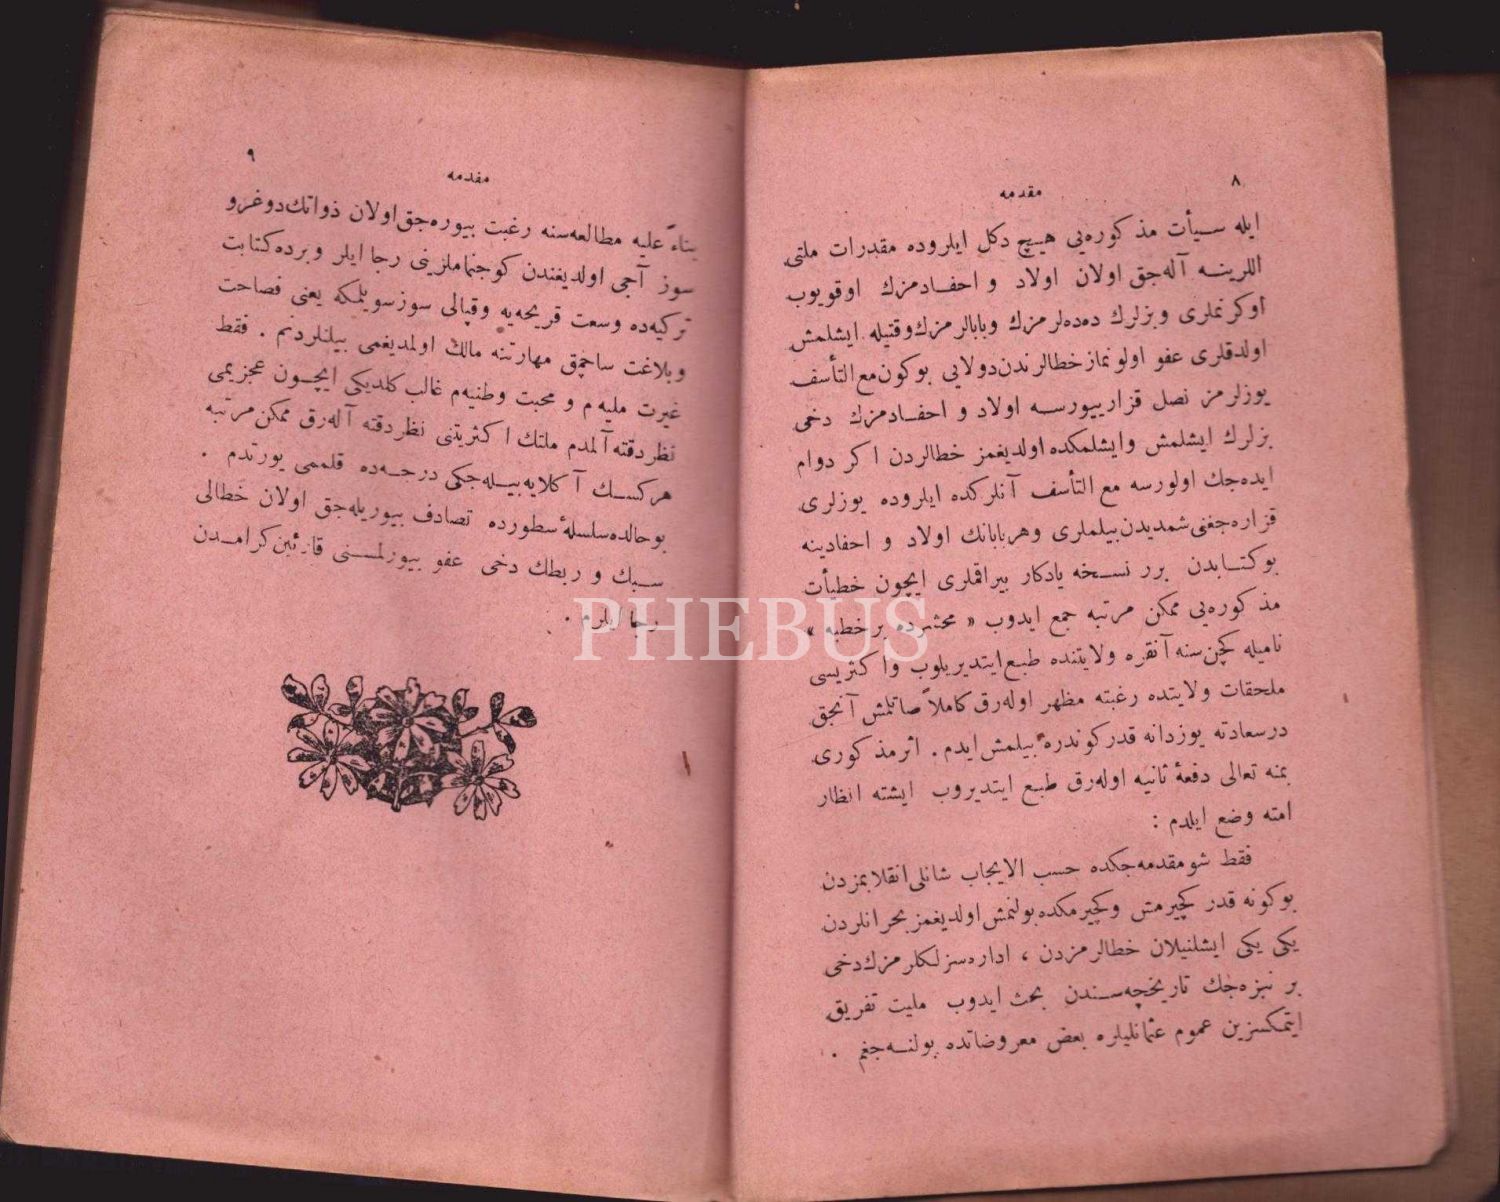 ٨
مقدمه
ايله سـيأت مذكوره‌يى هـيچ دكل ايلروده مقدرات ملتى
اللرينـه آله‌جق اولان اولاد و احفـادمزك اوقويوب
اوكرنملرى وبزلرك دده‌لرمزك وبابالرمزك وقتيله ايشلمش
اولدقلرى عفو اولونماز خطالرندن دولايى بوكون مع التأسف
يوزلرمز نصل قزارييورسـه اولاد و احفـادمزك دخى
بزلرك ايشلمش وايشلمكده اولديغمز خطالردن اكر دوام
ايده‌جك اولورسه مع التأسف آنلركده ايلروده يوزلرى
قزاره‌جغنى شمديدن بيلملرى وهر بابانك اولاد و احفادينه
بوكتـابدن برر نسـخه يادكار بيراقملرى ايچون خطيأت
مذكوره‌يى ممكن مرتبه جمع ايدوب « محشرده بر خطبه »
ناميله كچن سنه آنقره ولايتنده طبع ايتديريلوب واكثريسى
ملحقات ولايتده رغبته مظهر اوله‌رق كاملاً صاتلمش آنجق
درسعادته يوز دانه قدر كوندره بيلمش ايدم . اثر مذكورى
بمنه تعالى دفعهٔ ثانيه اوله‌رق طبـع ايتديروب ايشته انظار
امته وضع ايلدم :
فقط شو مقدمه‌جكده حسب الايجاب شانلى انقلابمزدن
بوكونه قدر كچيرمش وكچيرمكده بولنمش اولديغمز بحرانلردن
يكى يكى ايشلنيلان خطالرمزدن ، اداره‌سزلكلرمزك دخى
بر نبزه‌جك تاريخچه‌سـندن بحث ايدوب مليت تفريق
ايتمكسزين عموم عثمانليلره بعض معروضاتده بولنـه‌جغم .
٩
مقدمه
بناءً عليه مطالعه‌سنه رغبت بيوره‌جق اولان ذواتك دوغرو
سوز آجى اولديغندن كوجنماملرينى رجا ايلر وبرده كتابت
تركيه‌ده وسعت قريحه‌يه وقپالى سوز سويلمكه يعنى فصاحت
وبلاغت صاچمق مهارتنه مالك اولمديغمى بيلنلردنم . فقط
غيرت مليه‌م و محبت وطنيه‌م غالب كلديكى ايچـون عجزيمى
نظر دقته آلمدم ملتك اكثريتنى نظر دقته آله‌رق ممكن مرتبه
هركسـك آكلايه‌بيـله‌جكى درجـه‌ده قلممى يورتدم .
بوحالده سلسلهٔ سطورده تصادف بيوريله‌جق اولان خطالى
سـبك و ربطك دخى عفو بيورلمسـنى قارئين كرامـدن
رجا ايلرم .
PHEBUS